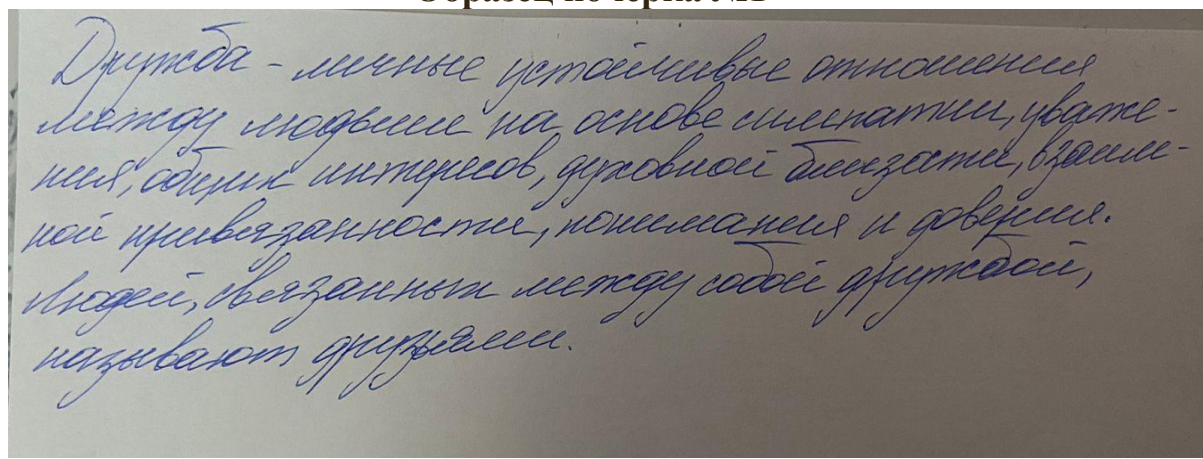 Дружба - личные устойчивые отношения
между людьми на основе симпатии, уваже-
ния, общих интересов, духовной близости, взаим-
ной привязанности, понимания и доверия.
Людей, связанных между собой дружбой,
называют друзьями.